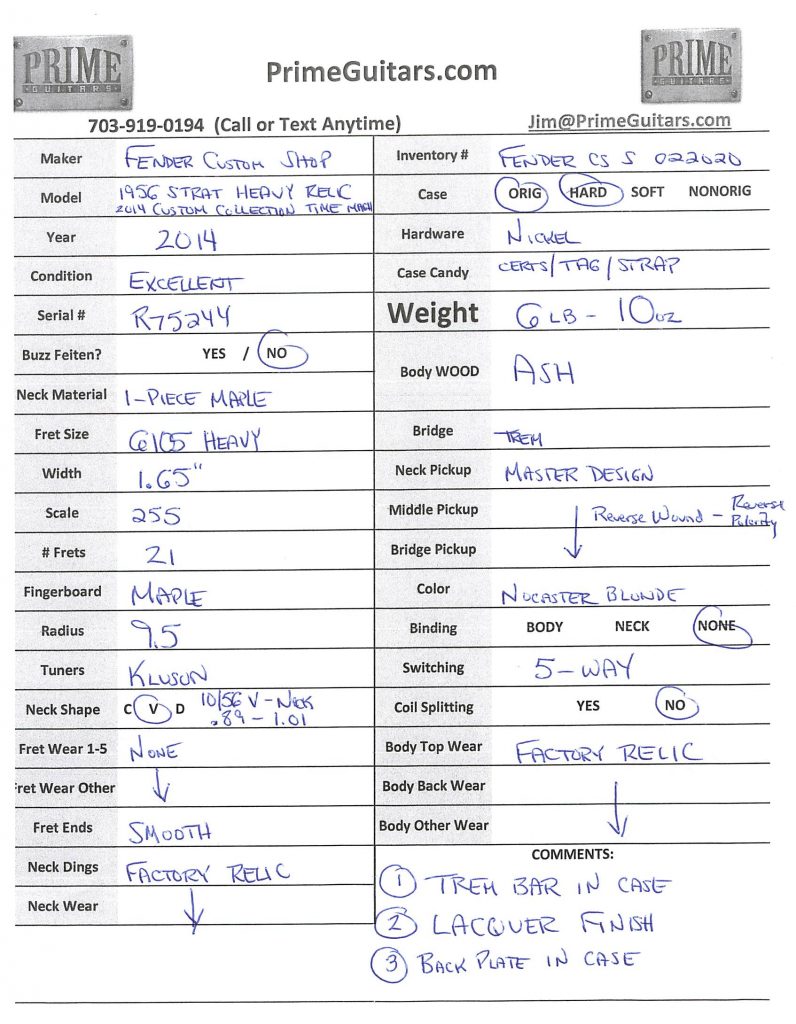 PRIME
GUITARS
PrimeGuitars.com
PRIME
GUITARS
703-919-0194 (Call or Text Anytime)
Jim@PrimeGuitars.com
Maker FENDER CUSTOM SHOP
Model 1956 STRAT HEAVY RELIC
2014 CUSTOM COLLECTION TIME MACH
Year 2014
Condition EXCELLENT
Serial # R75244
Buzz Feiten? YES / NO
Neck Material 1-PIECE MAPLE
Fret Size 6105 HEAVY
Width 1.65"
Scale 255
# Frets 21
Fingerboard MAPLE
Radius 9.5
Tuners KLUSON
Neck Shape C V D 10/56 V-NECK
.89 - 1.01
Fret Wear 1-5 NONE
Fret Wear Other
Fret Ends SMOOTH
Neck Dings FACTORY RELIC
Neck Wear
Inventory # FENDER CS S 022020
Case ORIG HARD SOFT NONORIG
Hardware NICKEL
Case Candy CERTS/TAG/STRAP
Weight 6 LB - 10 oz
Body WOOD ASH
Bridge TREM
Neck Pickup MASTER DESIGN
Middle Pickup Reverse Wound - Reverse Polarity
Bridge Pickup
Color NOCASTER BLONDE
Binding BODY NECK NONE
Switching 5-WAY
Coil Splitting YES NO
Body Top Wear FACTORY RELIC
Body Back Wear
Body Other Wear
COMMENTS:
1 TREM BAR IN CASE
2 LACQUER FINISH
3 BACK PLATE IN CASE